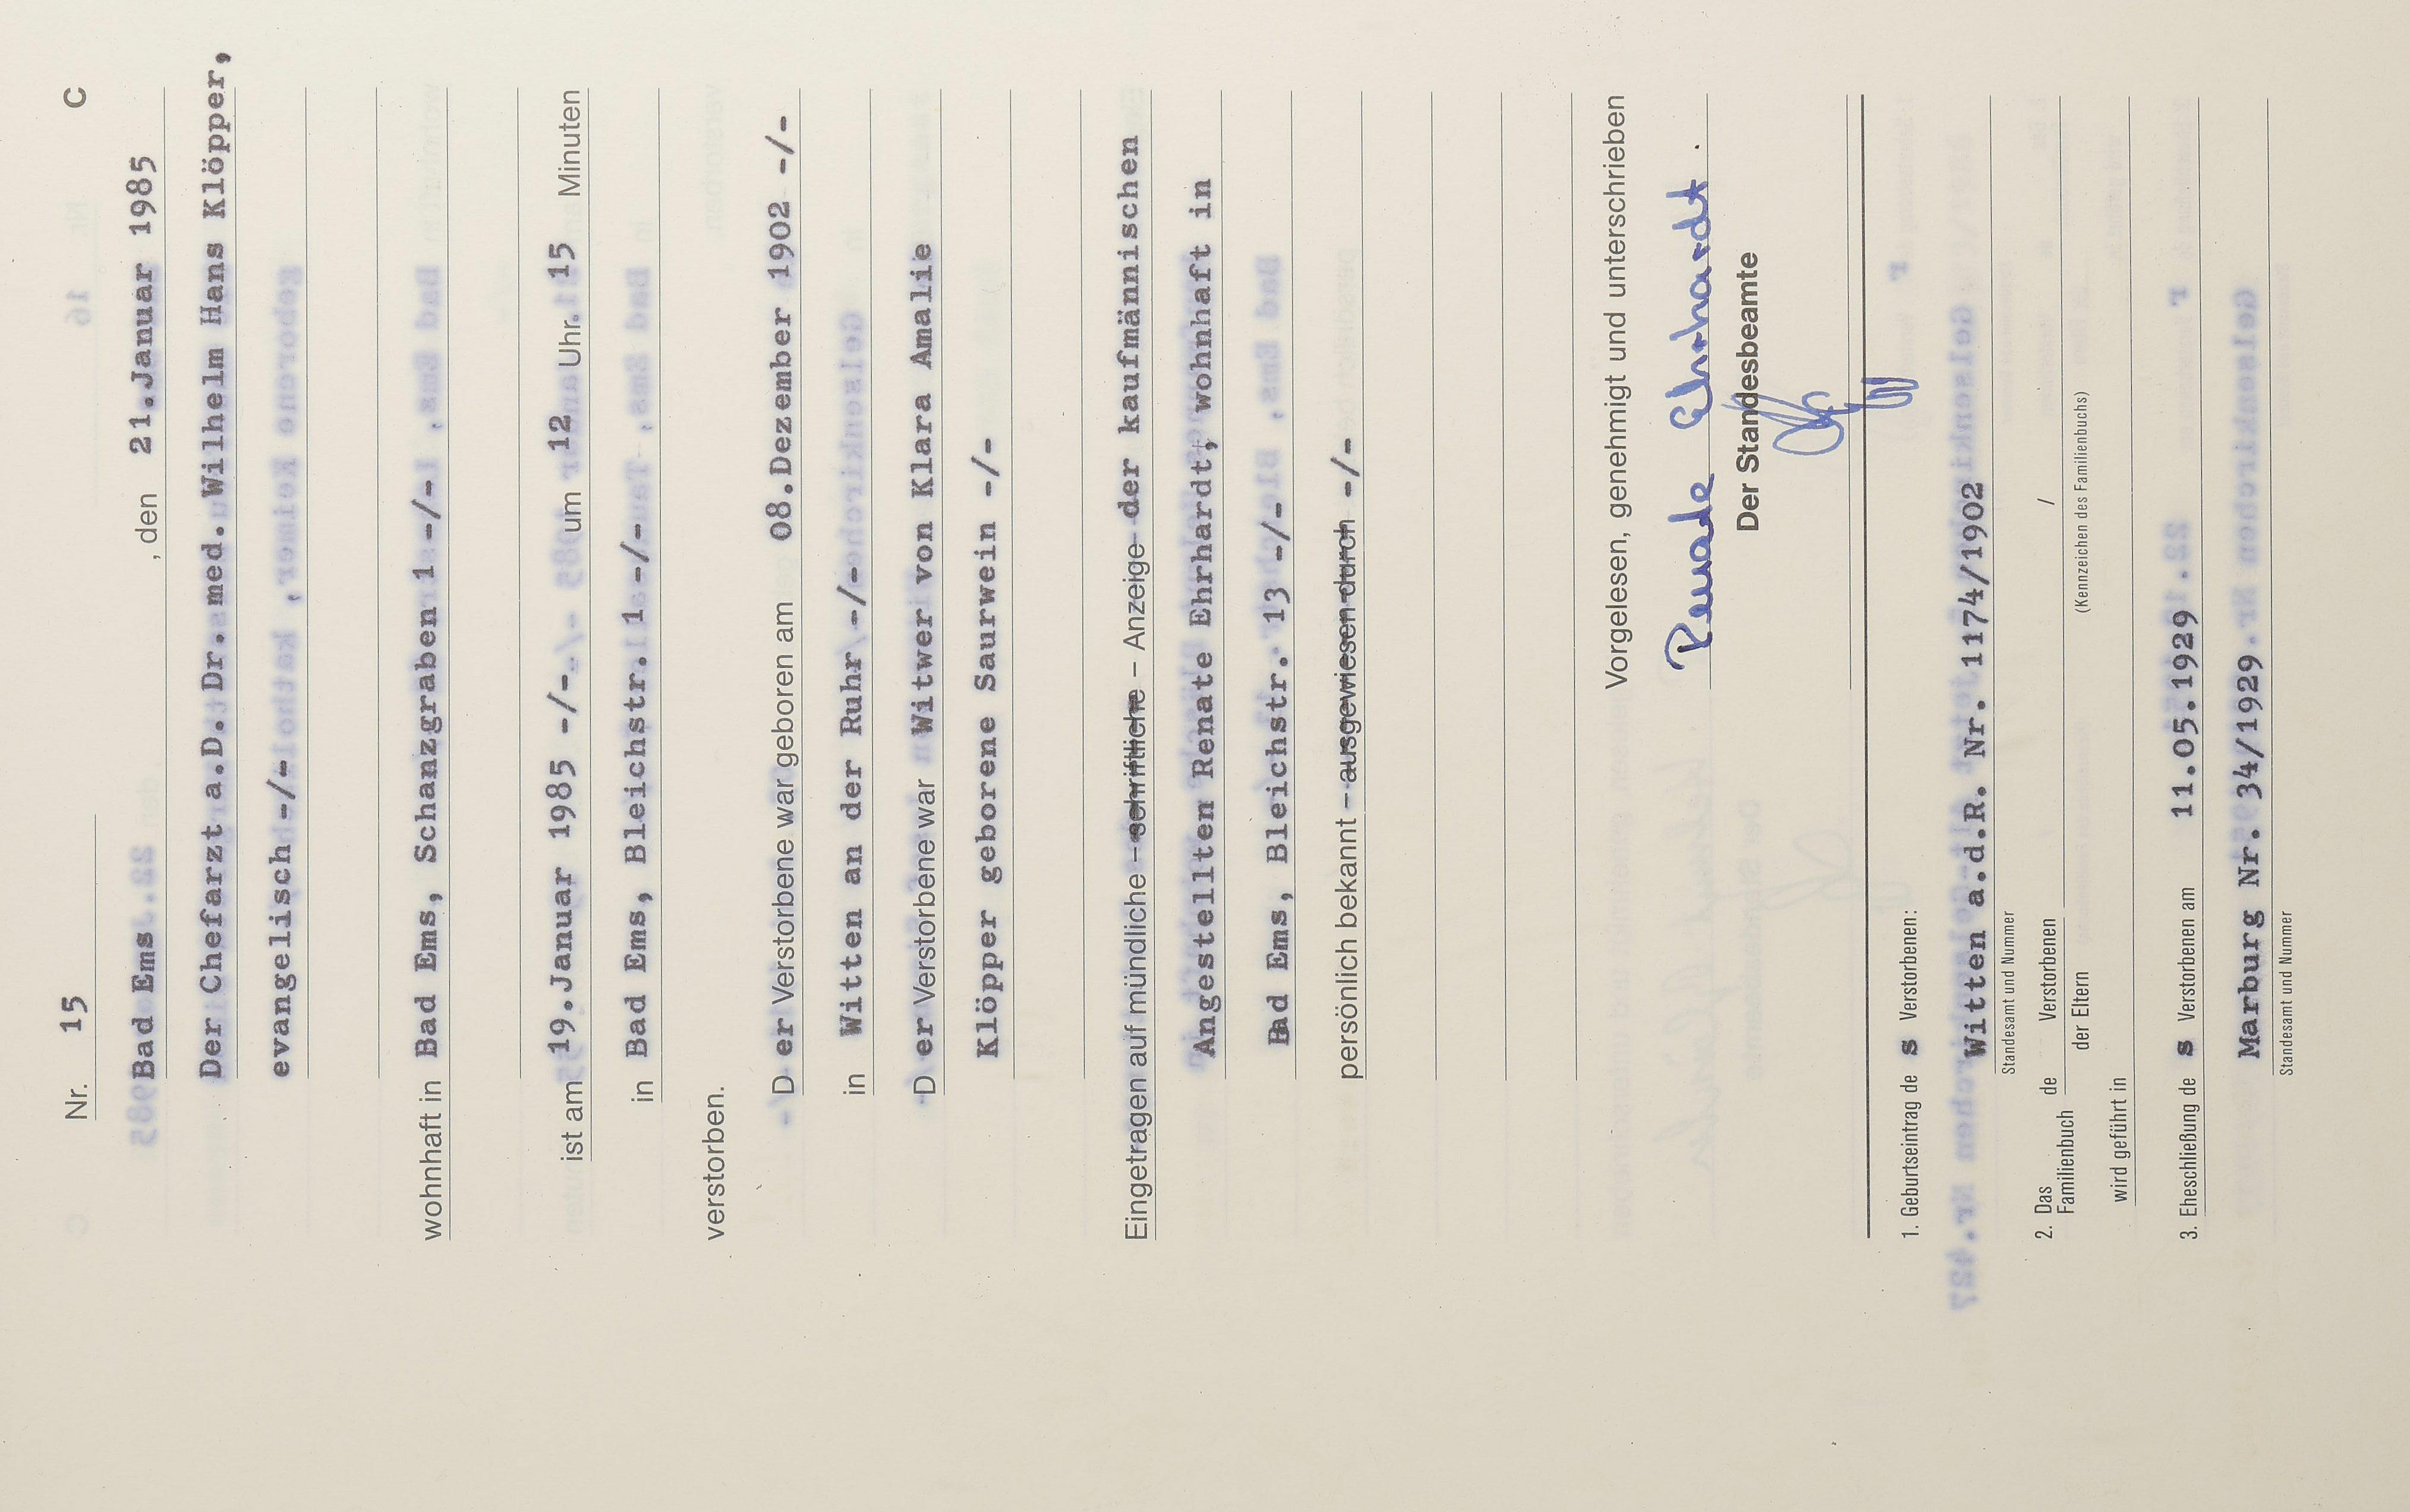 Nr. 15 C
Bad Ems , den 21.Januar 1985
Der Chefarzt a.D. Dr. med. Wilhelm Hans Klöpper,
evangelisch -/-
wohnhaft in Bad Ems, Schanzgraben 1 -/-
ist am 19.Januar 1985 -/- um 12 Uhr. 15 Minuten
in Bad Ems, Bleichstr. 1 -/-
verstorben.
D er Verstorbene war geboren am 08.Dezember 1902 -/-
in Witten an der Ruhr -/-
D er Verstorbene war Witwer von Klara Amalie
Klöpper geborene Saurwein -/-
Eingetragen auf mündliche – schriftliche – Anzeige der kaufmännischen
Angestellten Renate Ehrhardt, wohnhaft in
Bad Ems, Bleichstr. 13 -/-
persönlich bekannt – ausgewiesen durch -/-
Vorgelesen, genehmigt und unterschrieben
Renate Ehrhardt.
Der Standesbeamte
1. Geburtseintrag de s Verstorbenen:
Witten a.d.R. Nr. 1174/1902
Standesamt und Nummer
2. Das Familienbuch de Verstorbenen / der Eltern
(Kennzeichen des Familienbuchs)
wird geführt in
3. Eheschließung de s Verstorbenen am 11.05.1929
Marburg Nr. 34/1929
Standesamt und Nummer